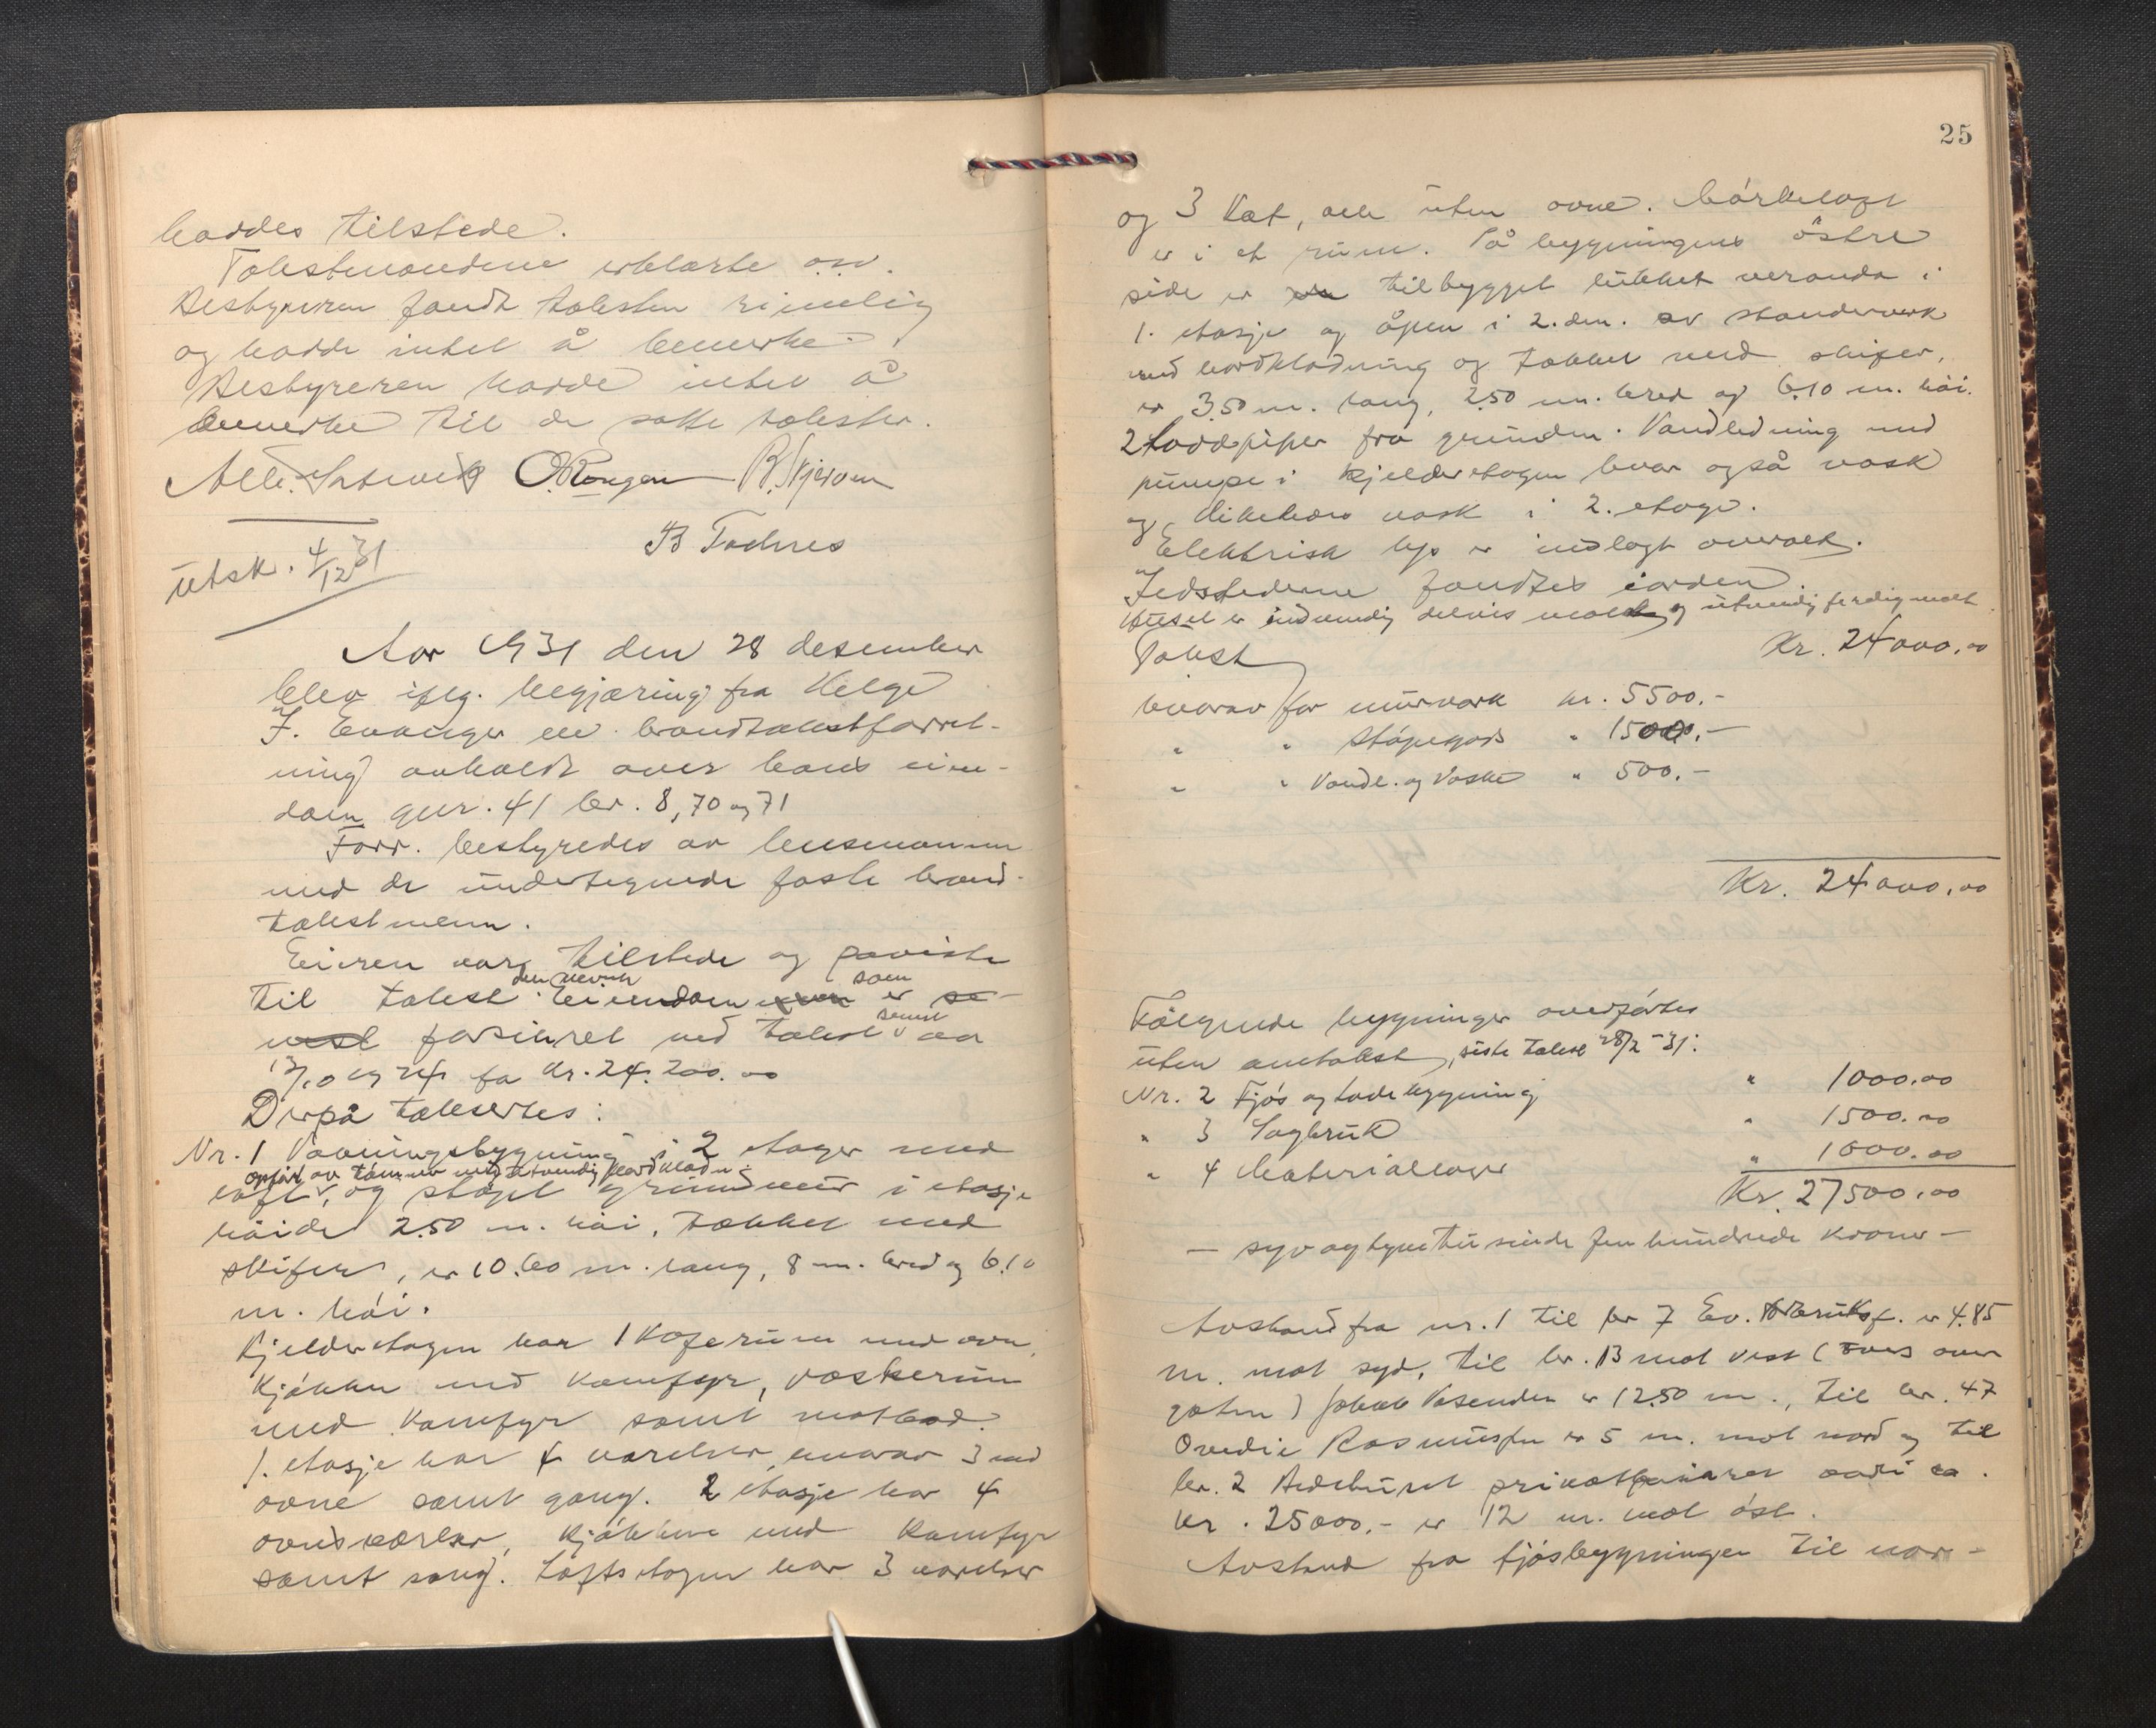 haddes tilstede.
Takstmændene erklærte osv.
Bestyreren fandt taksten rimelig
og hadde intet å bemerke.
Bestyreren hadde intet å
bemerke til de satte takster.
O Rongen R. Skjervem
B Todnes
Utsk. 4/12 31
Aar 1931 den 28 desember
blev iflg. begjæring fra Helge
J. Evanger en brandtakstforret-
ning avholdt over hans eien-
dom gnr. 41 br. 8, 70 og 71
Forr. bestyredes av lensmannen
med de undertegnede faste brand-
takstmenn.
Eieren var tilstede og paaviste
til takst den nevnte eiendom som er
forsikret ved takst senest av
13/10 1924 for Kr. 24.200.00
Derpå taksertes:
Nr. 1 Vaaningsbygning i 2 etager med
opført av tømmer med utvendig bordkledn.
loft, og støpt grundmur i etasje
høide 2.50 m. høi, tækket med
skifer, er 10.60 m. lang, 8 m. bred og 6.10
m. høi.
Kjelderetagen har 1 kaferum med ovn,
kjøkken med komfyr, vaskerum
med komfyr samt matbod.
1. etasje har 4 værelser hvorav 3 med
ovne samt gang. 2 etasje har 4
ovnsværelser, kjøkken med komfyr
samt gang. Loftsetagen har 3 værelser
25
og 3 kot, alle uten ovne. Mørkeloft
er i et rum. På bygningens østre
side er tilbygget lukket veranda i
1. etasje og åpen i 2.den. av standerverk
med bordkledning og tækket med skifer,
er 3.50 m. lang, 2.50 m. bred og 6.10 m. høi.
2 brandpiper fra grunden. Vandledning med
pumpe i kjelderetagen hvor også vask
og likeledes vask i 2. etage.
Elektrisk lys er indlagt overalt.
Ildstederne fandtes i orden.
Huset er indvendig delvis malt og utvendig ferdig malt
Takst Kr. 24 000,00
hvorav for murverk kr. 5500.-
" " Støpegods " 1500.-
" " Vandl. og Vaske " 500.-
Kr. 24 000,00
Følgende bygninger overførtes
uten omtakst, siste takst 28/2-31:
Nr. 2 Fjøs og ladebygning " 1000.00
" 3 Sagbruk " 1500.00
" 4 Materiallager " 1000.00
Kr. 27500.00
— syv og tyve tusinde fem hundrede kroner —
Avstand fra nr. 1 til br 7 Ev. f. er 4.85
m. mot syd, til br. 13 mot vest (tvers over
gaten) Jakob Vasenden er 12.50 m., til br. 47
Ovedie Rasmussen er 5 m. mot nord og til
br. 2 privat
kr. 25000,- er 12 m. mot øst.
Avstand fra fjøsbygningen til nær-